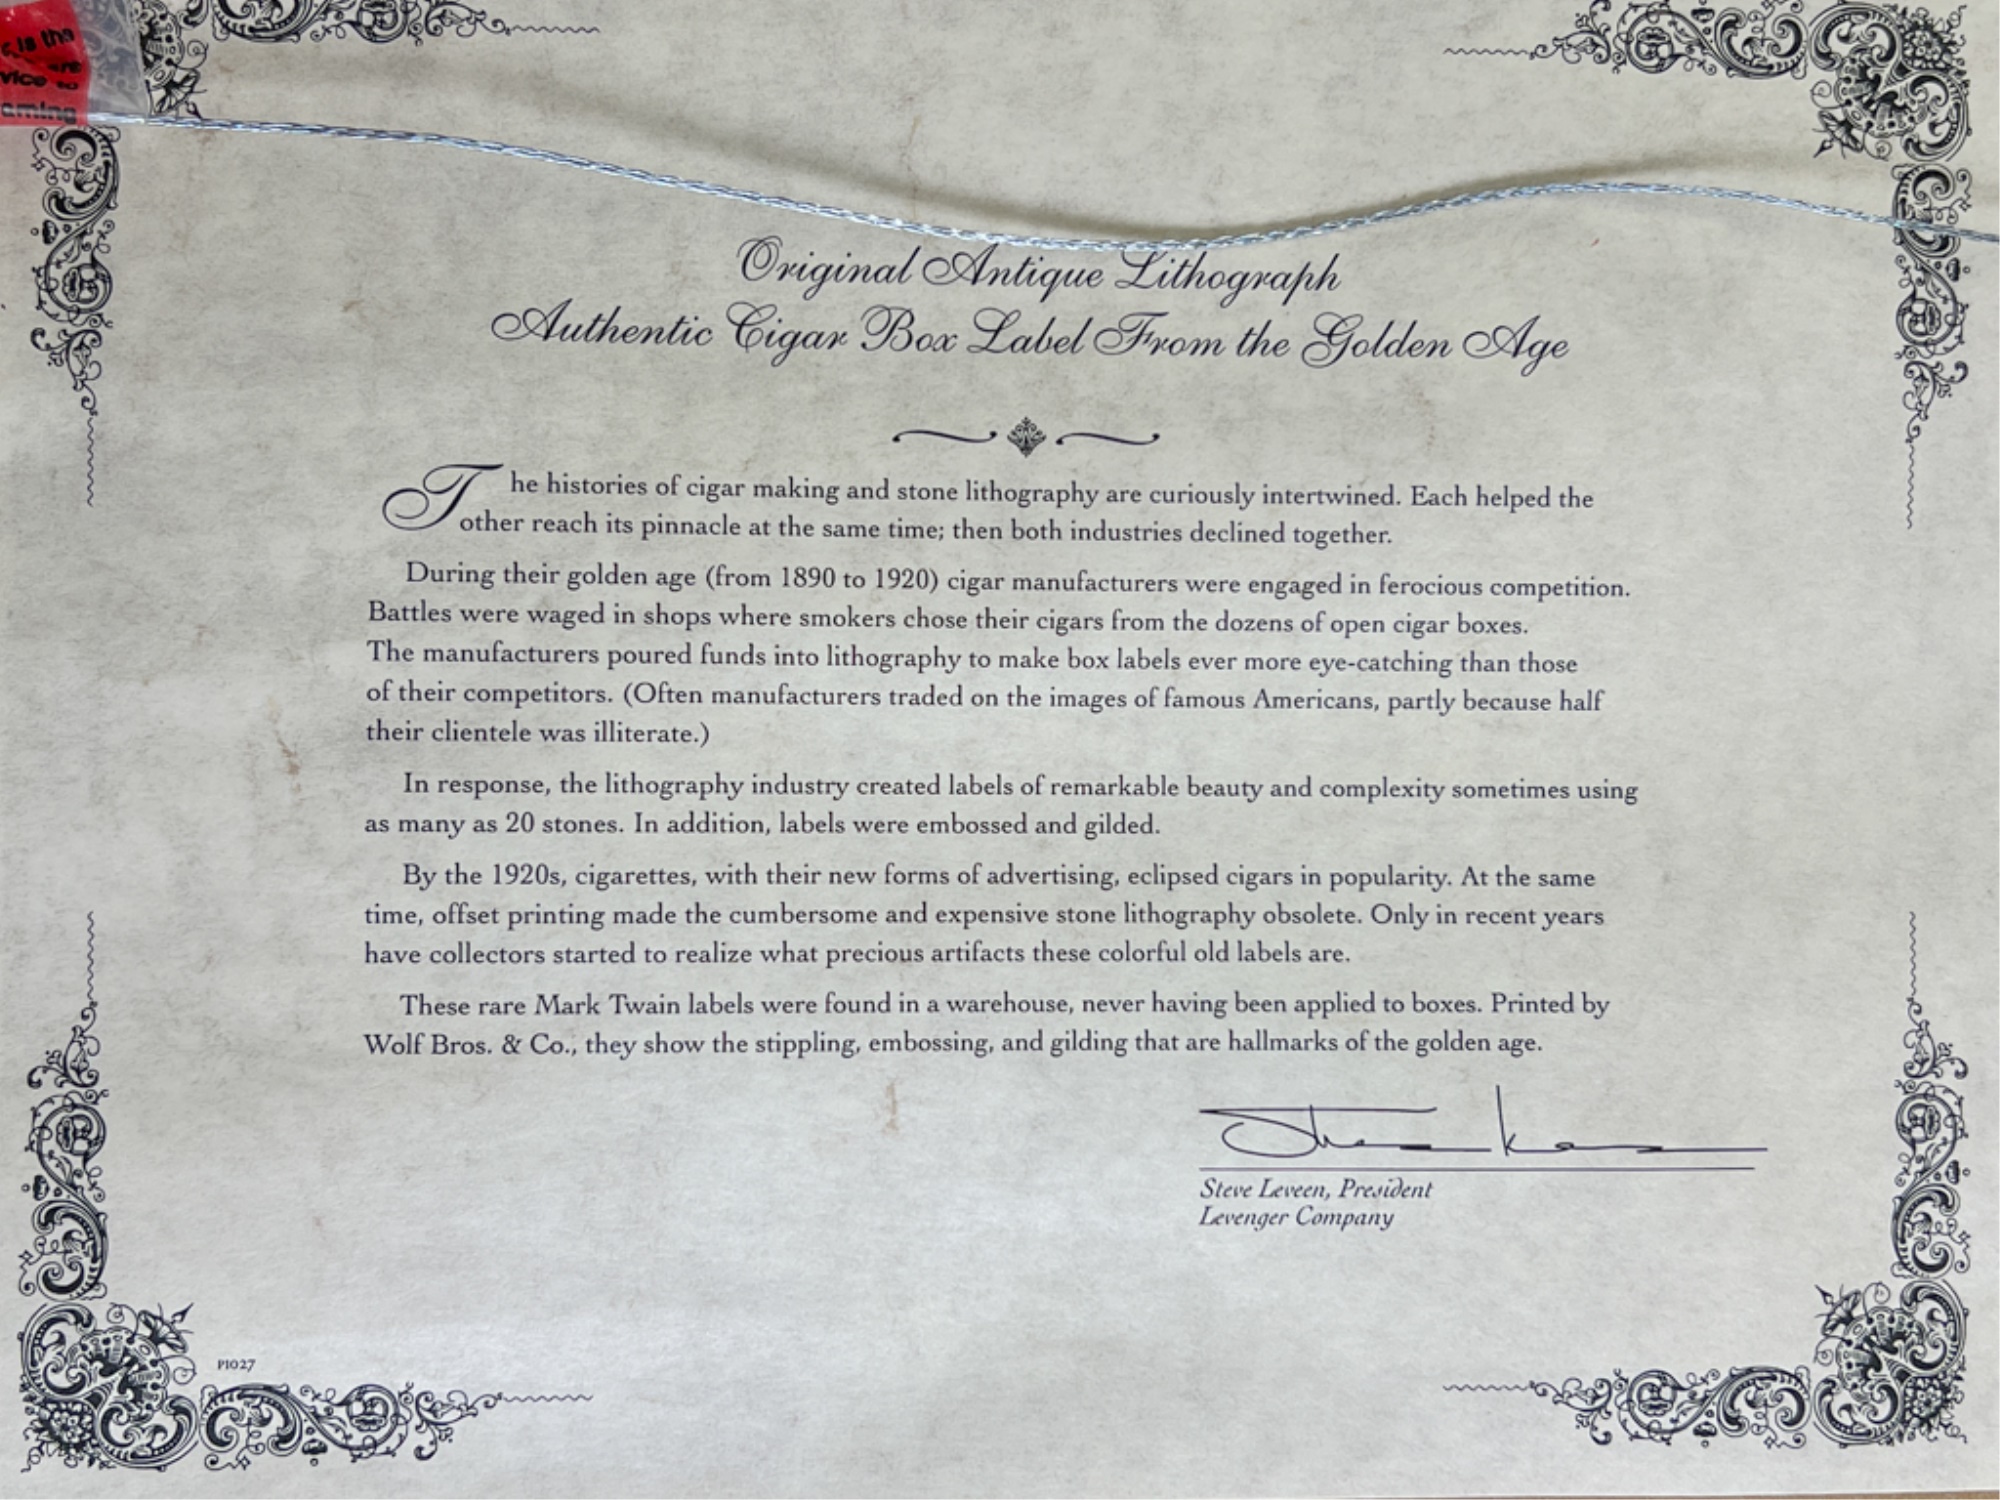 is the
vice to
Original Antique Lithograph
Authentic Cigar Box Label From the Golden Age
The histories of cigar making and stone lithography are curiously intertwined. Each helped the
other reach its pinnacle at the same time; then both industries declined together.
During their golden age (from 1890 to 1920) cigar manufacturers were engaged in ferocious competition.
Battles were waged in shops where smokers chose their cigars from the dozens of open cigar boxes.
The manufacturers poured funds into lithography to make box labels ever more eye-catching than those
of their competitors. (Often manufacturers traded on the images of famous Americans, partly because half
their clientele was illiterate.)
In response, the lithography industry created labels of remarkable beauty and complexity sometimes using
as many as 20 stones. In addition, labels were embossed and gilded.
By the 1920s, cigarettes, with their new forms of advertising, eclipsed cigars in popularity. At the same
time, offset printing made the cumbersome and expensive stone lithography obsolete. Only in recent years
have collectors started to realize what precious artifacts these colorful old labels are.
These rare Mark Twain labels were found in a warehouse, never having been applied to boxes. Printed by
Wolf Bros. & Co., they show the stippling, embossing, and gilding that are hallmarks of the golden age.
Steve Leveen, President
Levenger Company
PI027